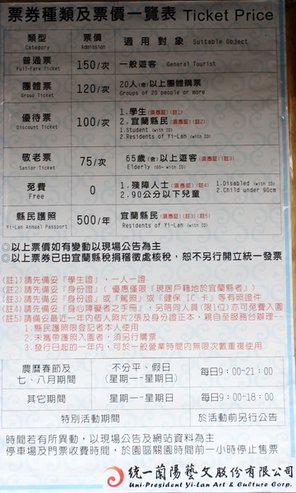 票券種類及票價一覽表 Ticket Price
類型 票價 適用對象 Suitable Object
Category Admission
普通票 150/次 一般遊客 General Tourist
Full-Fare Ticket
團體票 120/次 20人(含)以上團體購票
Group Ticket Groups of 20 people or more
優待票 100/次 1.學生(須憑証)(註1)
Discount Ticket 2.宜蘭縣民(須憑証)(註2)
1.Student (with ID)
2.Residents of Yi-Lan (with ID)
敬老票 75/次 65歲(含)以上遊客(須憑証)(註3)
Senior Ticket Elderly (65+ with ID)
免費 0 1.殘障人士(須憑証)(註4) 1.Disabled (with ID)
Free 2.90公分以下兒童 2.Child under 90cm
縣民護照 500/年 宜蘭縣民(須憑証)(註3)(註5)
Yi-Lan Annual Passport Residents of Yi-Lan (with ID)
◎以上票價如有變動以現場公告為主
◎以上票券已由宜蘭縣稅捐稽徵處核稅，恕不另行開立統一發票
(註1)請先備妥「學生證」，一人一證
(註2)請先備妥「身份證」(優惠僅限「現居戶籍地於宜蘭縣者」)
(註3)請先備妥「身份證」或「駕照」或「健保IC卡」等有照證件
(註4)請先備妥「身心障礙者之手冊」，另同入員(限1位)亦可免費入園
(註5)請備最近一年內個人照片2張及身份證正本，親自至服務台辦理--
1.縣民護照限登記者本人使用
2.未攜帶護照入園者，須另行購票
3.發行日起的一年內，可於一般營業時間內無限次數重複使用
農曆春節及 不分平、假日 每日9:00-21:00
七、八月期間 (星期一-星期日)
其它期間 星期一-星期日 每日9:00-18:00
特別活動期間 於活動前另行公告
時間若有所異動，以現場公告及網站資料為主
停車場及門票收費時間，於園區關園時間前一小時停止售票
統一蘭陽藝文股份有限公司
Uni-President Yi-Lan Art & Culture Corp.